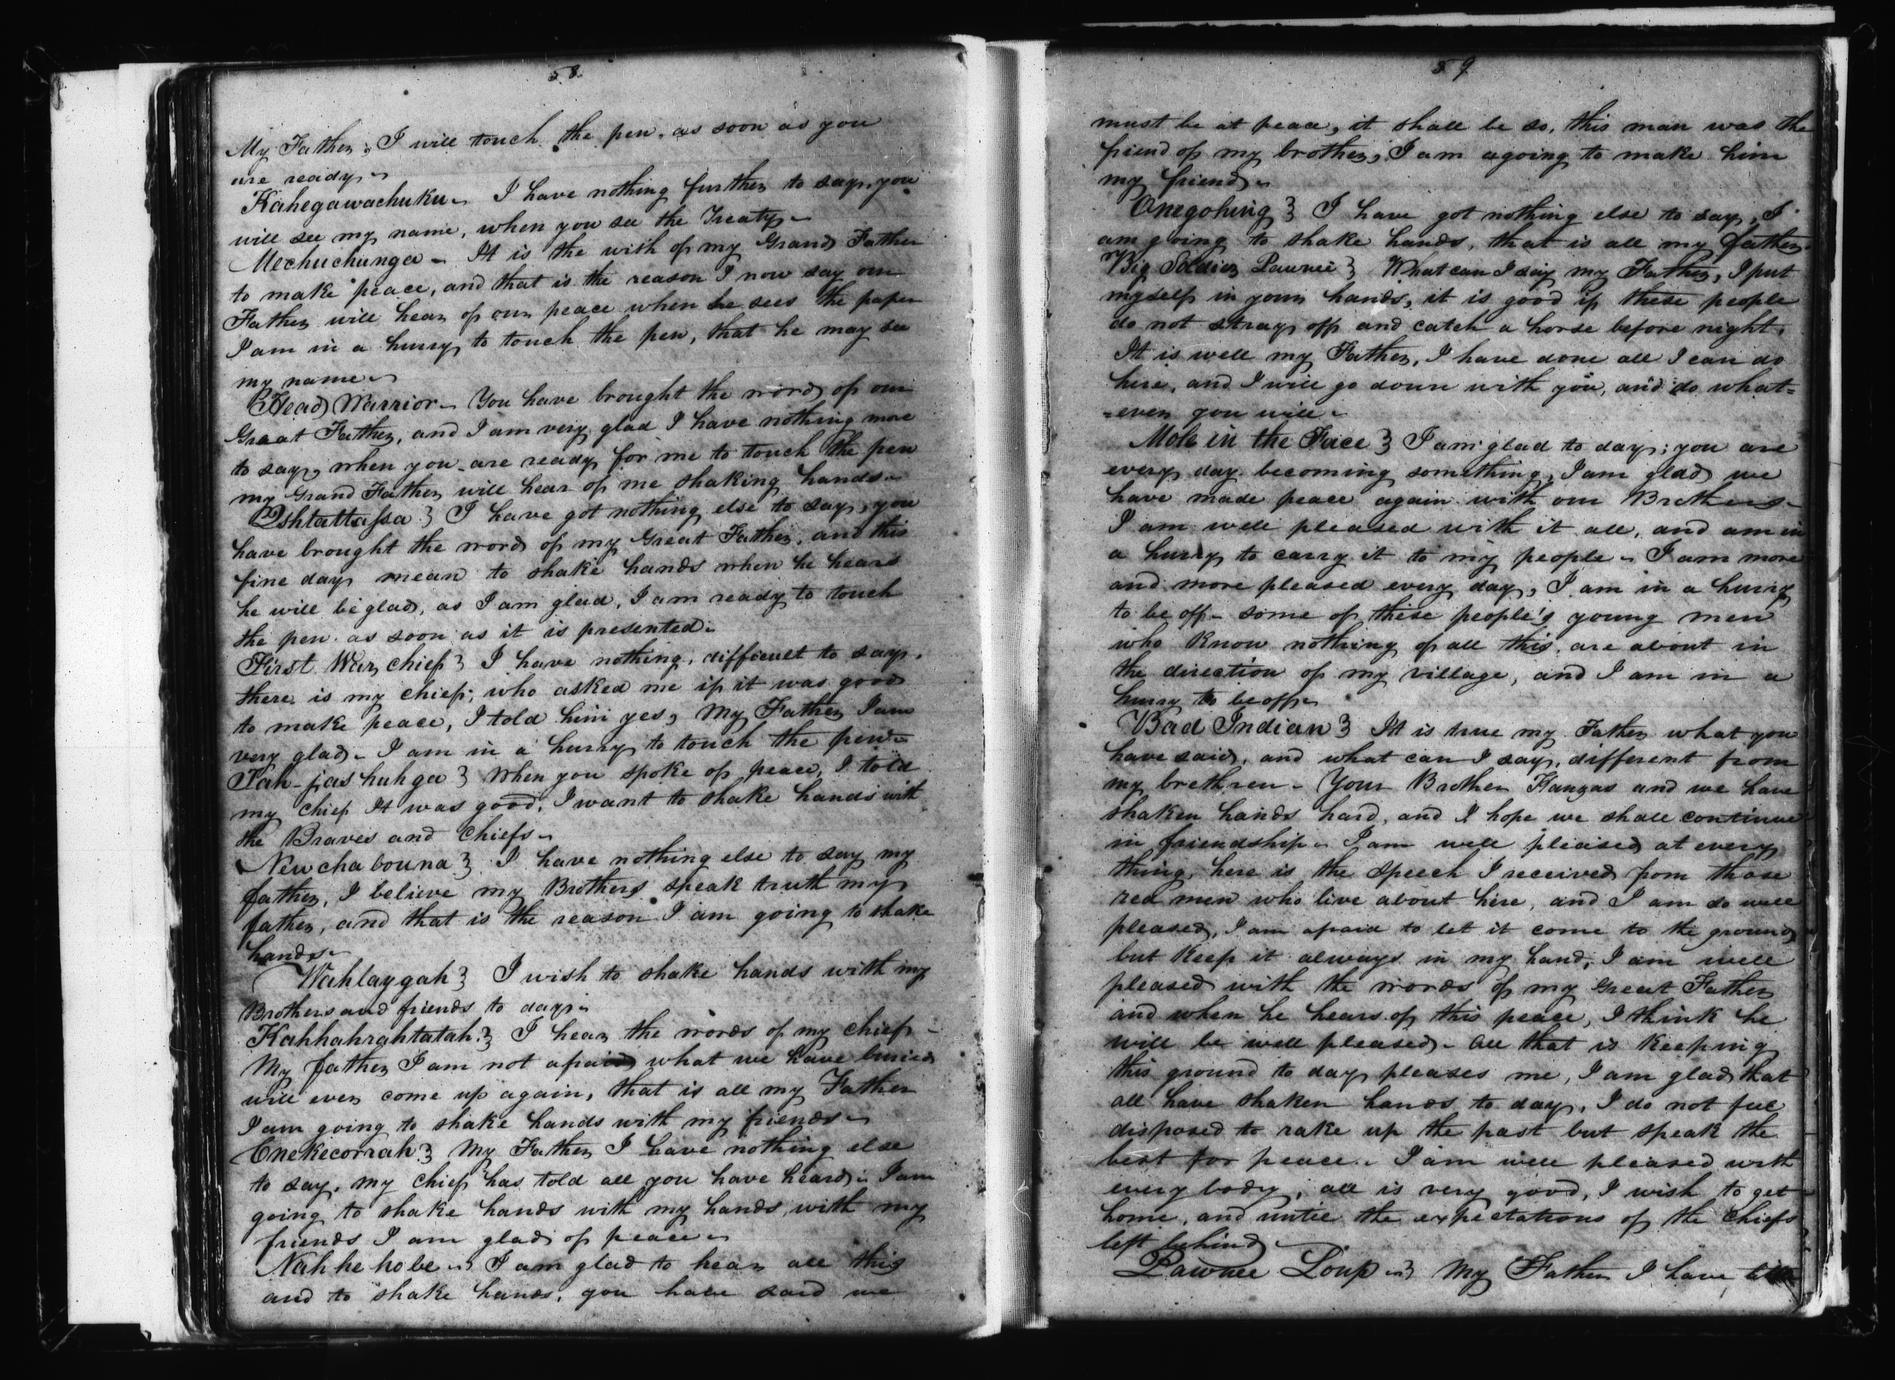 58
My Father, I will touch the pen, as soon as you
are ready.
Kahegawachuku. I have nothing further to say, you
will see my name, when you see the Treaty.
Mechuchunga - It is the wish of my Grand Father
to make peace, and that is the reason I now say our
Father will hear of our peace when he sees the paper
I am in a hurry to touch the pen, that he may see
my name.
Head Warrior. You have brought the word of our
Great Father, and I am very glad I have nothing more
to say, when you are ready for me to touch the pen
my Grand Father will hear of me shaking hands.
Ishtattassa } I have got nothing else to say, you
have brought the word of my Great Father, and this
fine day mean to shake hands when he hears
he will be glad, as I am glad, I am ready to touch
the pen as soon as it is presented.
First War chief } I have nothing, difficult to say.
there is my chief; who asked me if it was good
to make peace, I told him yes, My Father I am
very glad. I am in a hurry to touch the pen.
Tah-jashuhga } When you spoke of peace, I told
my chief It was good, I want to shake hands with
the Braves and Chiefs.
Newchabouna } I have nothing else to say my
father, I believe my Brothers speak truth my
father, and that is the reason I am going to shake
hands.
Wahlaygah } I wish to shake hands with my
Brothers and friends to day.
Kahhahrahtatah } I hear the words of my chief -
My father I am not afraid what we have buried
will ever come up again, that is all my Father
I am going to shake hands with my friends.
Enekecorrah } My Father I have nothing else
to say, my chief has told all you have heard. I am
going to shake hands with my hands, with my
friends I am glad of peace.
Nahhehobe. } I am glad to hear all this
and to shake hands, you have said we
59
must be at peace, it shall be so, this man was the
friend of my brother, I am agoing to make him
my friend.
Onegohing } I have got nothing else to say, I
am going to shake hands, that is all my father.
Big Soldier Pawnee } What can I say my Father, I put
myself in your hands, it is good if these people
do not stray off and catch a horse before night.
It is well my Father, I have done all I can do
here, and I will go down with you, and do what=
=ever you will.
Mole in the Face } I am glad to day; you are
every day becoming something, I am glad we
have made peace again with our Brothers.
I am well pleased with it all, and am in
a hurry to carry it to my people. I am more
and more pleased every day, I am in a hurry
to be off. some of these people's young men
who know nothing of all this, are about in
the direction of my village, and I am in a
hurry to be off.
Bad Indian } It is true my Father what you
have said, and what can I say, different from
my brethren. Your Brother Kanzas and we have
shaken hands hard, and I hope we shall continue
in friendship. I am well pleased at every
thing, here is the speech I received from those
red men who live about here, and I am so well
pleased, I am afraid to let it come to the ground
but keep it always in my hand, I am well
pleased with the words of my Great Father
and when he hears of this peace, I think he
will be well pleased. all that is keeping
this ground to day pleases me, I am glad that
all have shaken hands to day, I do not feel
disposed to rake up the past but speak the
best for peace. I am well pleased with
every body, all is very good, I wish to get
home, and untie the expectations of the chiefs
left behind.
Pawnee Loup } My Father I have